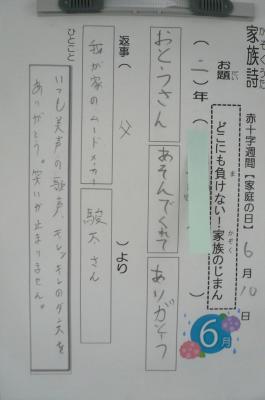 かぞくうた
家族詩
赤十字週間【家庭の日】 6月10日
お題
だい
どこにも負けない！家族のじまん
ま
かぞく
6月
（二）年（
おとうさん
あそんでくれて
ありがとう
返事（父）より
我が家のムードメーカー
駿太さん
ひとこと
いつも美声の歌声、キレッキレのダンスを
ありがとう。笑いが止まりません。